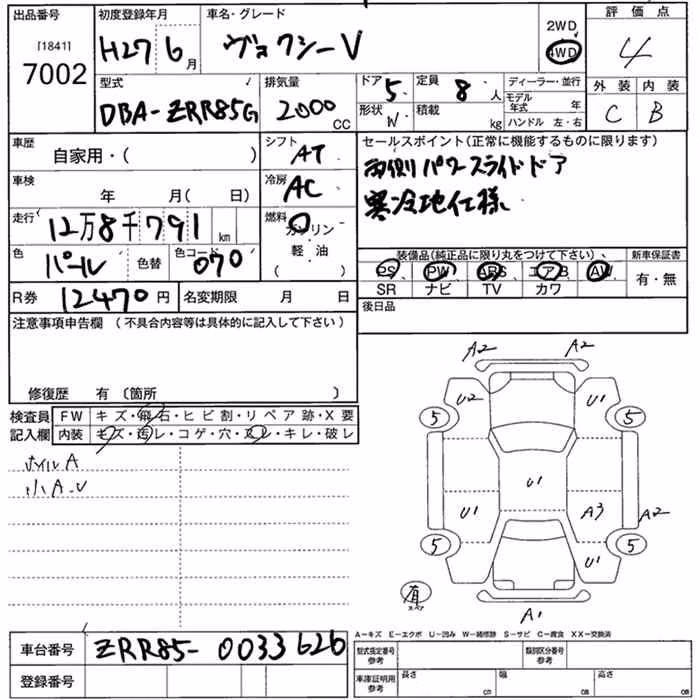 出品番号
[1841]
7002
初度登録年月
H27 6月
車名・グレード
ヴォクシーV
2WD
4WD
評価点
4
型式
DBA-ZRR85G
排気量
2000 CC
ドア 5
定員 8 人
形状 W
積載 kg
ディーラー・並行
モデル年式 年
ハンドル 左・右
外装 内装
C B
車歴
自家用・( )
シフト
AT
車検
年 月( 日)
冷房
AC
走行
12万8千791 km
燃料
ガソリン
軽・油
( )
色
パール
色替
色コード
070
セールスポイント(正常に機能するものに限ります)
両側パワースライドドア
寒冷地仕様
装備品(純正品に限り丸をつけて下さい)
新車保証書
PS PW ABS エアB AW
SR ナビ TV カワ
有・無
R券 12470 円
名変期限 月 日
後日品
注意事項申告欄 (不具合内容等は具体的に記入して下さい)
修復歴 有 〔箇所 〕
検査員
記入欄
FW キズ・飛石・ヒビ割・リペア跡・X要
内装 キズ・汚レ・コゲ・穴・スレ・キレ・破レ
ホイルA
小A-U
A2 A2
U2 U1
5 5
U1
U1 A3 A2
5 5
U1
有
スペア
A1
A-キズ E-エクボ U-凹み W-補修跡 S-サビ C-腐食 XX-交換済
車台番号 ZRR85-0033626
登録番号
型式指定番号
参考
類別区分番号
参考
車庫証明用
参考
長さ cm
幅 cm
高さ cm